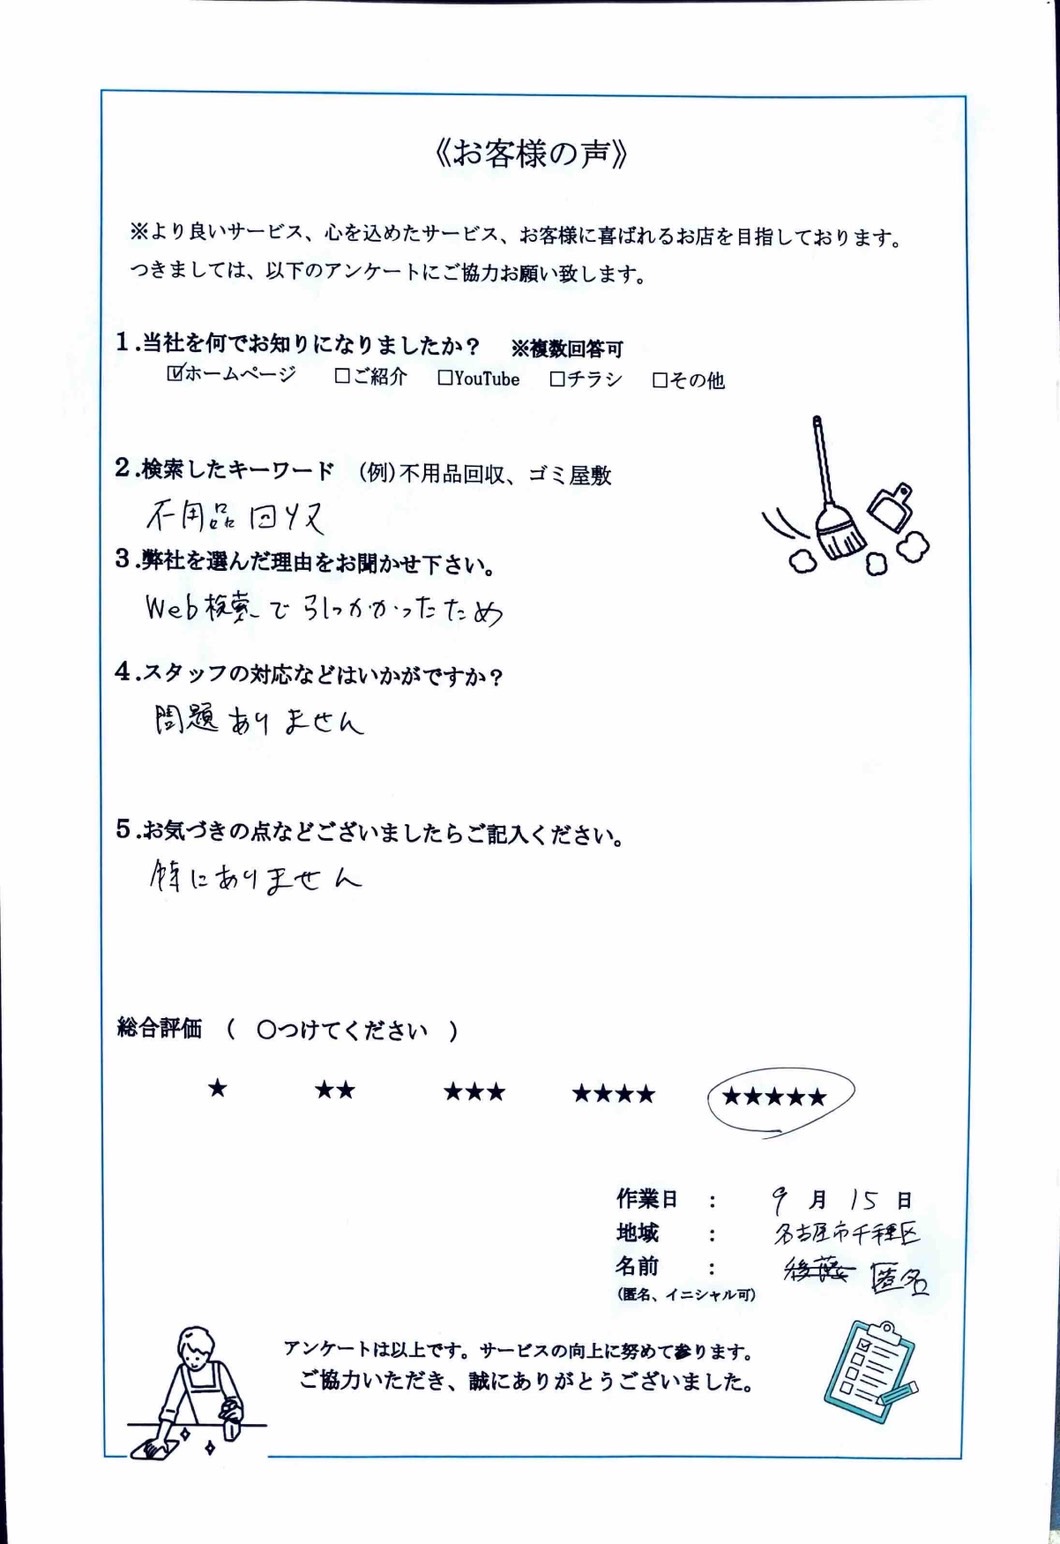 《お客様の声》
※より良いサービス、心を込めたサービス、お客様に喜ばれるお店を目指しております。
つきましては、以下のアンケートにご協力お願い致します。
1.当社を何でお知りになりましたか？ ※複数回答可
☑ホームページ □ご紹介 □YouTube □チラシ □その他
2.検索したキーワード (例)不用品回収、ゴミ屋敷
不用品回収
3.弊社を選んだ理由をお聞かせ下さい。
Web検索で引っかかったため
4.スタッフの対応などはいかがですか？
問題ありません
5.お気づきの点などございましたらご記入ください。
特にありません
総合評価 （ ○つけてください ）
★ ★★ ★★★ ★★★★ ★★★★★
作業日 ： 9月15日
地域 ： 名古屋市千種区
名前 ： 匿名
(匿名、イニシャル可)
アンケートは以上です。サービスの向上に努めて参ります。
ご協力いただき、誠にありがとうございました。